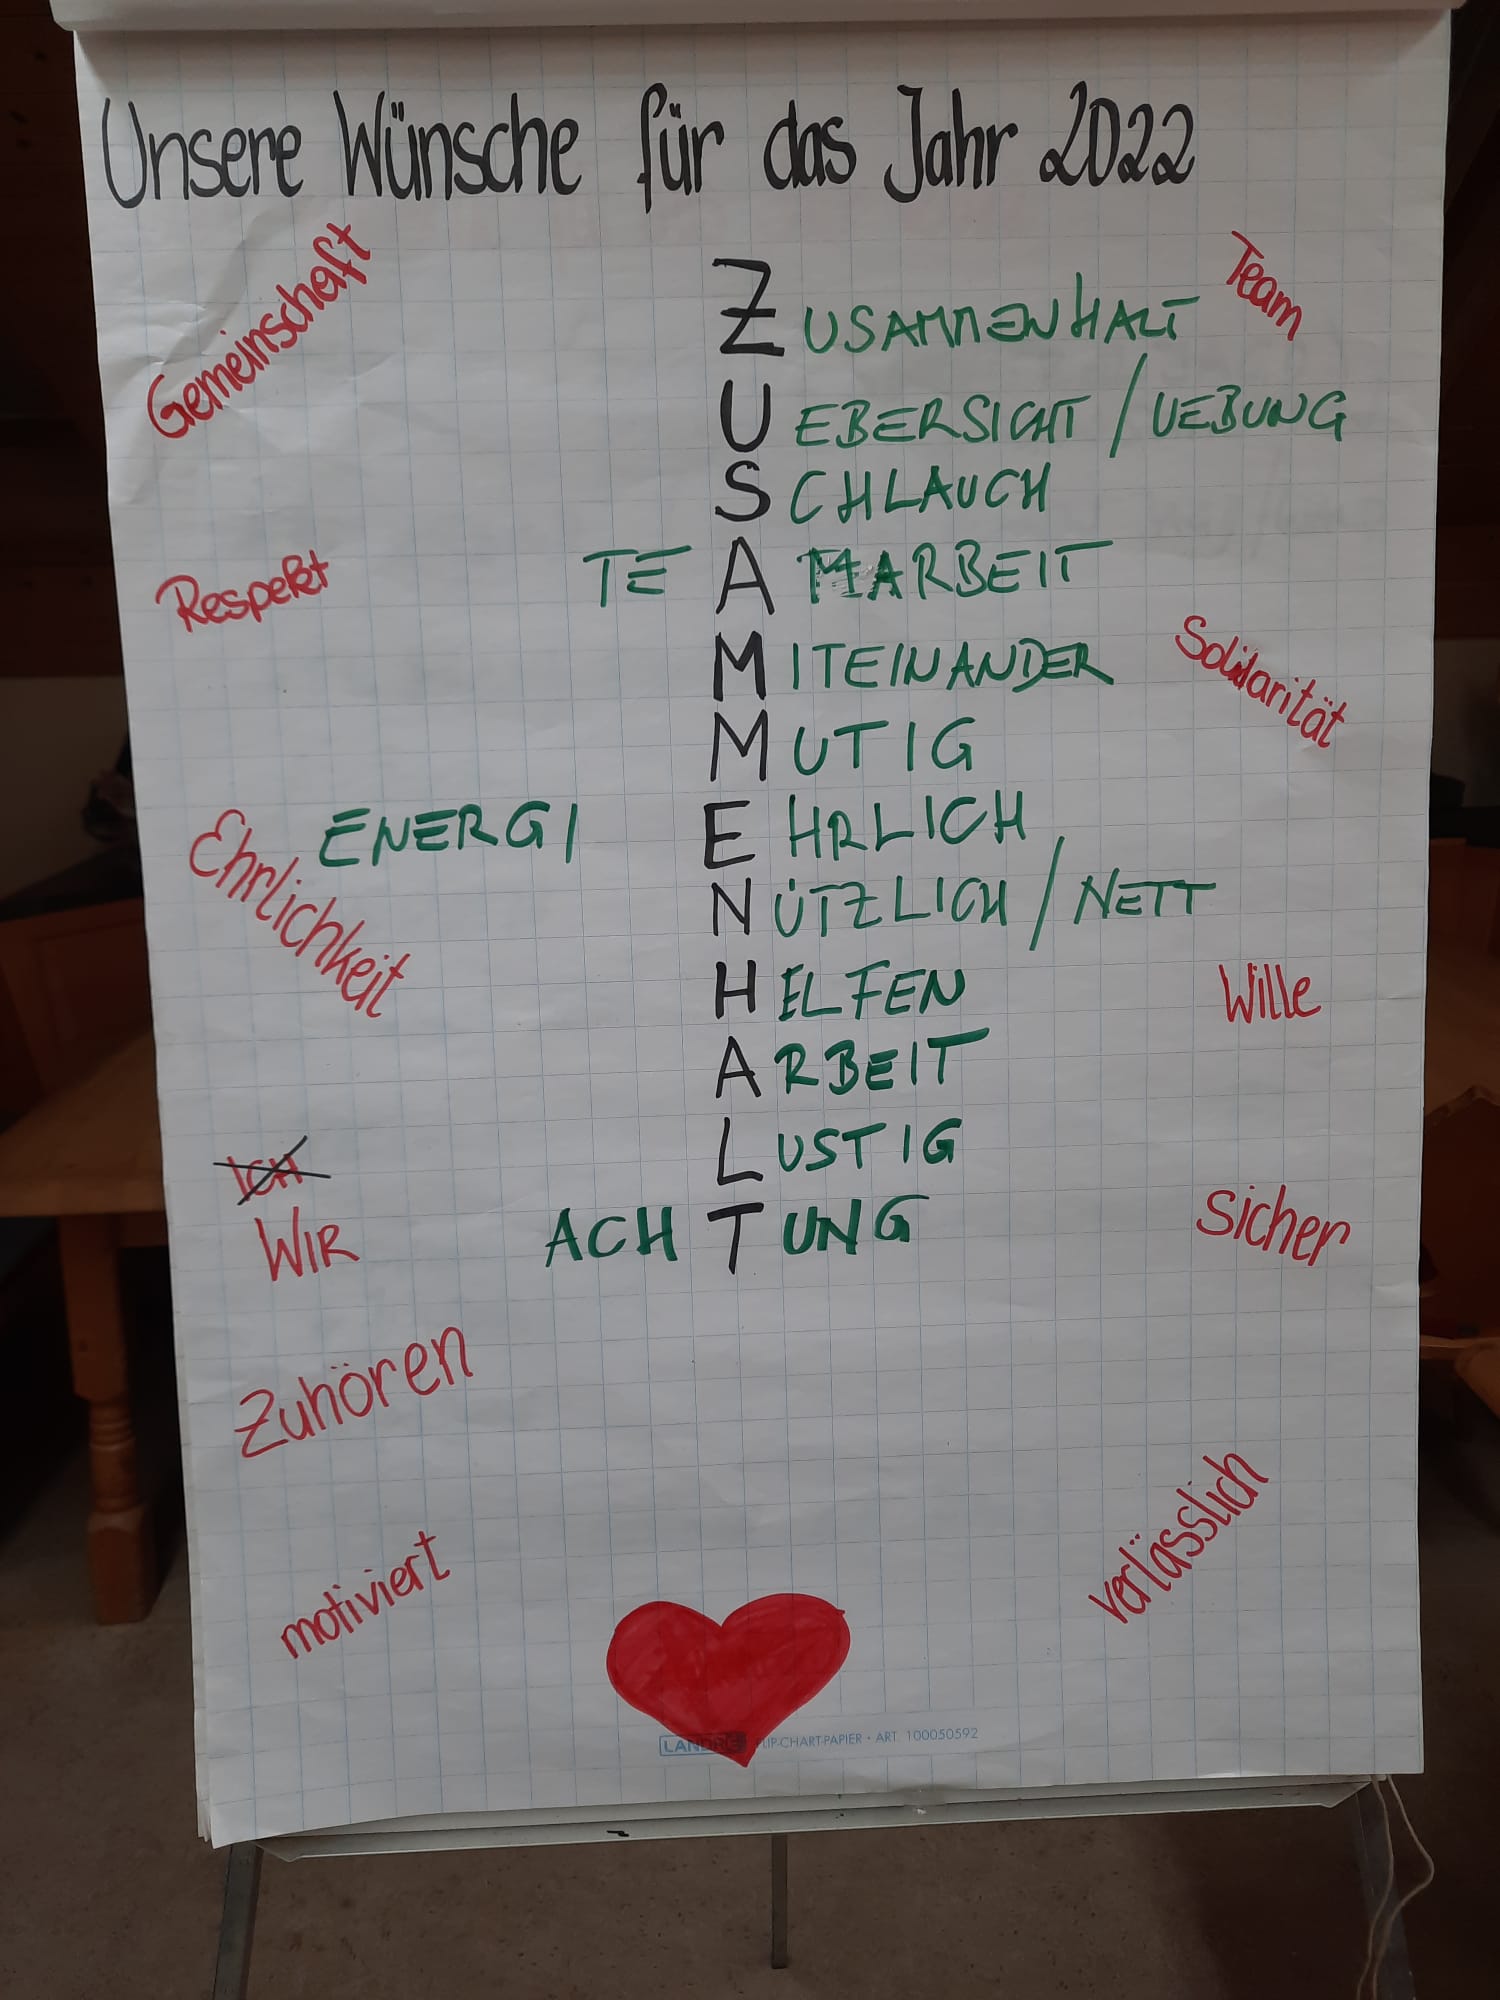 Unsere Wünsche für das Jahr 2022
Gemeinschaft
Team
ZUSAMMENHALT
UEBERSICHT / UEBUNG
SCHLAUCH
Respekt
TEAMARBEIT
MITEINANDER
Solidarität
MUTIG
ENERGI EHRLICH
Ehrlichkeit
NÜTZLICH / NETT
HELFEN
Wille
ARBEIT
LUSTIG
ICH
WIR
ACHTUNG
Sicher
Zuhören
verlässlich
motiviert
LANDRÉ FLIP-CHART-PAPIER • ART. 100050592